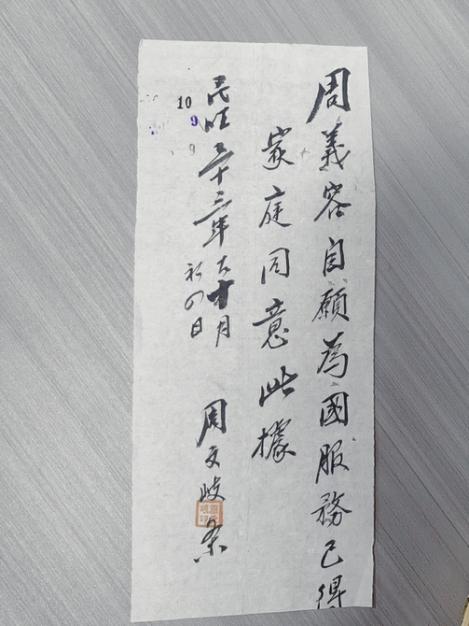 周義容自願為國服務已得
家庭同意此據
民國三十三年十月
初四日
周文岐条
10
9
9